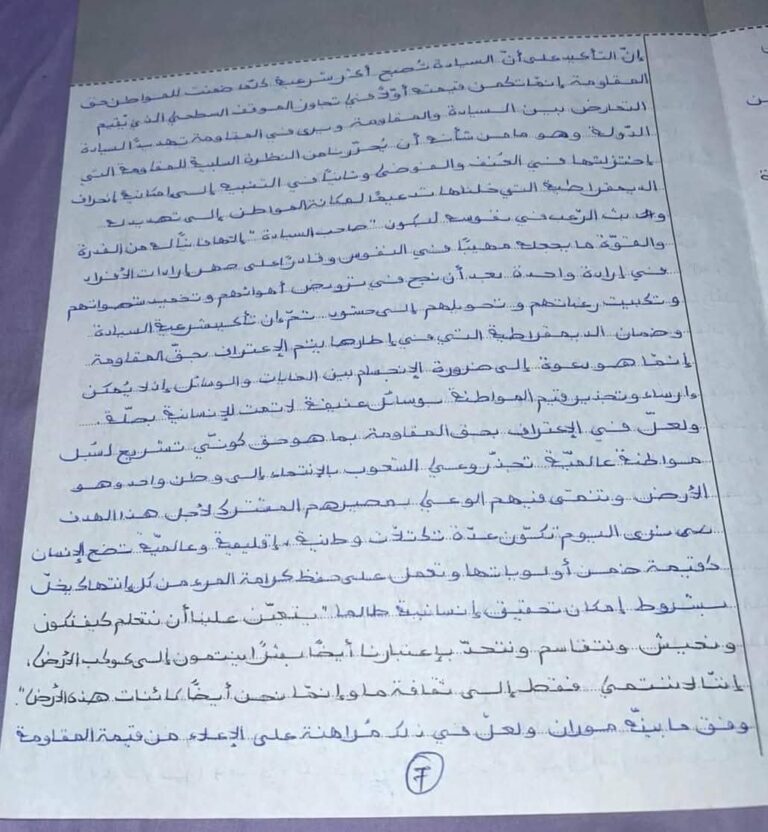 إنّ التأكيد على أنّ السيادة تُصبح أكثر شرعية كلّما ضمنت للمواطن حق
المقاومة إنّما تكمن قيمته أوّلا في تجاوز الموقف السطحي الذي يُقيم
التعارض بين السيادة والمقاومة ويرى في المقاومة تهديدًا لسيادة
الدّولة وهو ما من شأنه أن يُحرّرنا من النظرة السلبية للمقاومة التي
إختزلتها في العُنف والفوضى وثانيًا في التنبيه إلى إمكانية إنحراف
الديمقراطية التي خلناها تدعيمًا لمكانة المواطن إلى تهديد له
وبث الرّعب في نفوسه ليكون "صاحب السيادة" إلاها فانيًا له من القدرة
والقوّة ما يجعله مهيبًا في النفوس وقادرًا على صهر إرادات الأفراد
في إرادة واحدة بعد أن نجح في ترويض أهوائهم وتخميد شهواتهم
وتكبيت رغباتهم وتحويلهم إلى حشود. ثمّ إنّ تأكيد شرعية السيادة
وضمان الديمقراطية التي في إطارها يتم الإعتراف بحقّ المقاومة
إنّما هو دعوة إلى ضرورة الإنسجام بين الغايات والوسائل إذ لا يُمكن
إرساء وتجذير قيم المواطنة بوسائل عنيفة لا تمت للإنسانية بصلة.
ولعلّ في الإعتراف بحق المقاومة بما هو حق كونيّ تشريع لسُبل
مواطنة عالميّة تجذّر وعي الشعوب بالإنتماء إلى وطن واحد وهو
الأرض وتنمّي فيهم الوعي بمصيرهم المشترك لأجل هذا الهدف
نرى اليوم تكوّن عدّة تكتلات وطنية، إقليمية وعالميّة تضع الإنسان
كقيمة ضمن أولوياتها وتعمل على حفظ كرامة المرء من كل إنتهاك يخلّ
بشروط إمكان تحقيق إنسانية طالما "يتعيّن علينا أن نتعلم كيف نكون
ونعيش ونتقاسم ونتحدّ بإعتبارنا أيضًا بشرًا ينتمون إلى كوكب الأرض،
إنّنا لا ننتمي فقط إلى ثقافة ما وإنّما نحن أيضًا كائنات هذه الأرض".
وفق ما بيّنه موران ولعلّ في ذلك مُراهنة على الإعلاء من قيمة المقاومة
7